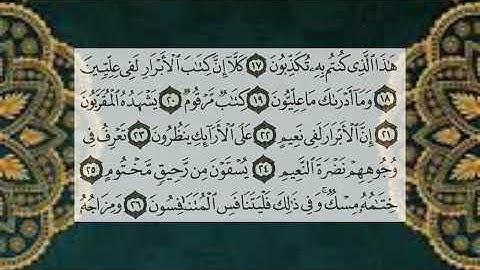 هَٰذَا ٱلَّذِى كُنتُم بِهِۦ تُكَذِّبُونَ ١٧ كَلَّآ إِنَّ كِتَٰبَ ٱلْأَبْرَارِ لَفِى عِلِّيِّينَ
١٨ وَمَآ أَدْرَىٰكَ مَا عِلِّيُّونَ ١٩ كِتَٰبٌ مَّرْقُومٌ ٢٠ يَشْهَدُهُ ٱلْمُقَرَّبُونَ
٢١ إِنَّ ٱلْأَبْرَارَ لَفِى نَعِيمٍ ٢٢ عَلَى ٱلْأَرَآئِكِ يَنظُرُونَ ٢٣ تَعْرِفُ فِى
وُجُوهِهِمْ نَضْرَةَ ٱلنَّعِيمِ ٢٤ يُسْقَوْنَ مِن رَّحِيقٍ مَّخْتُومٍ ٢٥
خِتَٰمُهُۥ مِسْكٌ ۚ وَفِى ذَٰلِكَ فَلْيَتَنَافَسِ ٱلْمُتَنَٰفِسُونَ ٢٦ وَمِزَاجُهُۥ